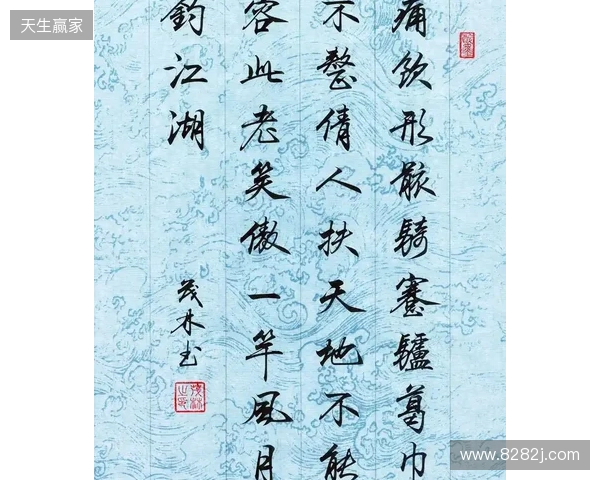 天生赢家
痛飲形骸騎蹇驢葛巾
不整倩人扶天地不能
容此老笑傲一竿風月
釣江湖
茂林书
www.8282j.com